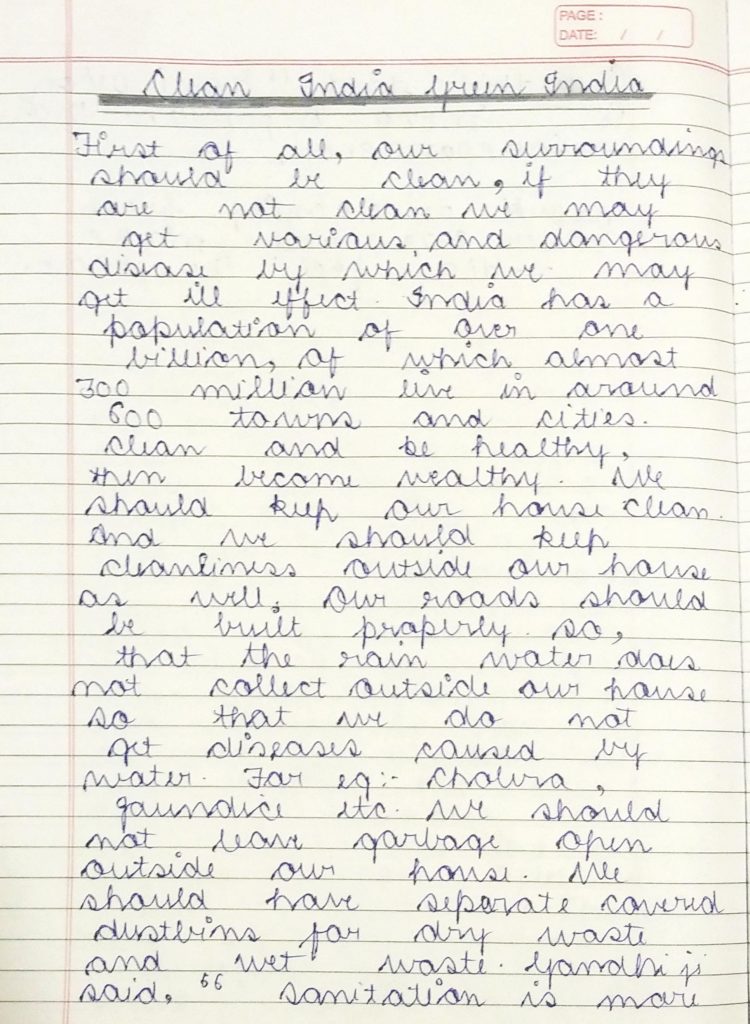 PAGE:
DATE: / /
Clean India Green India
First of all, our surroundings
should be clean, if they
are not clean we may
get various and dangerous
disease by which we may
get ill effect. India has a
population of over one
billion, of which almost
300 million live in around
600 towns and cities.
clean and be healthy,
then become wealthy. We
should keep our house clean.
And we should keep
cleanliness outside our house
as well. Our roads should
be built properly. so,
that the rain water does
not collect outside our house
so that we do not
get diseases caused by
water. For eg:- Cholera,
jaundice etc. We should
not leave garbage open
outside our house. We
should have separate covered
dustbins for dry waste
and wet waste. Gandhi ji
said, "Sanitation is more